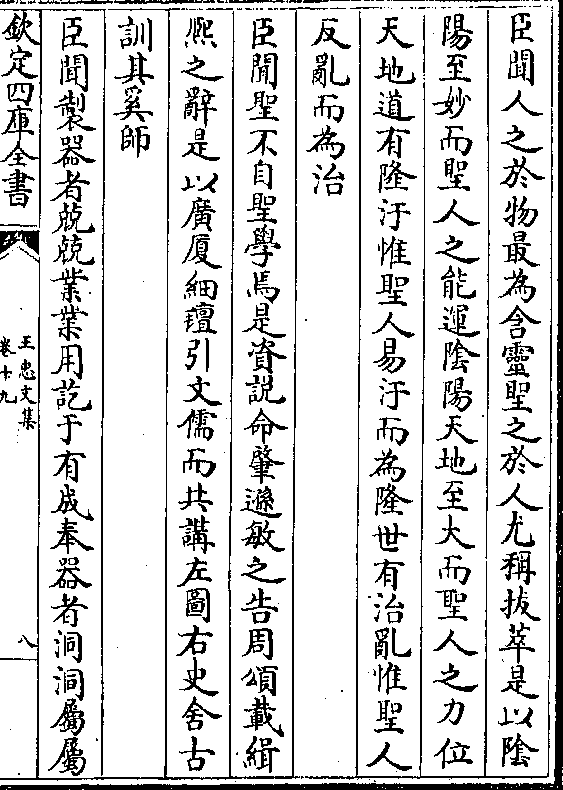 臣聞人之於物最為含靈聖之於人尤稱拔萃是以陰
陽至妙而聖人之能運陰陽天地至大而聖人之力位
天地道有隆汙惟聖人易汙而為隆世有治亂惟聖人
反亂而為治
臣聞聖不自聖學焉是資説命肇遜敏之告周頌載緝
熈之辭是以廣厦細氊引文儒而共講左圖右史舍古
訓其奚師
臣聞製器者兢兢業業用訖于有成奉器者洞洞屬屬
欽定四庫全書
王忠文集
卷十九
八